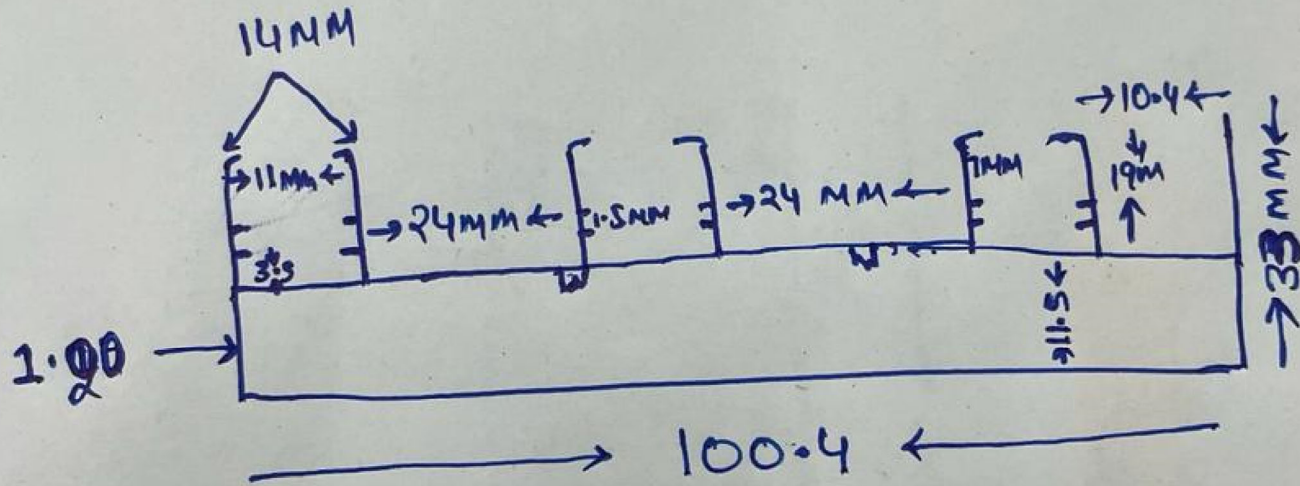 14MM
→10.4←
→11MM←
1MM
19M
→24MM←
1.5MM
→24 MM←
3.5
→33MM←
11.5
1.20
100.4